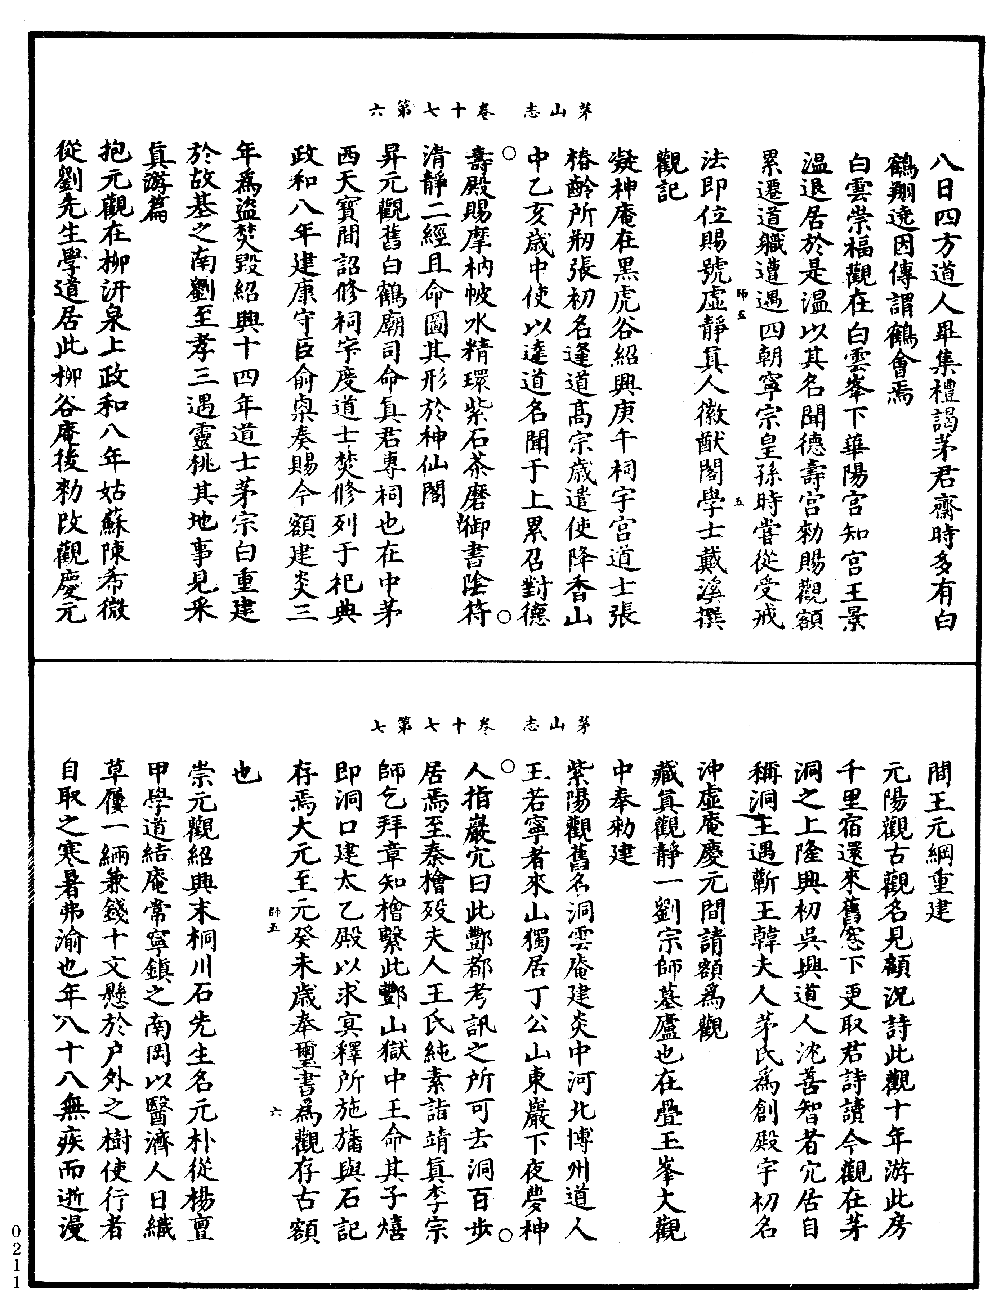 茅山志　卷十七第六
八日四方道人畢集禮謁茅君齋時多有白
鶴翔遶因傳謂鶴會焉
白雲崇福觀在白雲峯下華陽宮知宮王景
溫退居於是溫以其名聞德壽宮勑賜觀額
累遷道職遭遇四朝寧宗皇孫時嘗從受戒
師五　五
法即位賜號虛靜真人徽猷閣學士戴溪撰
觀記
凝神庵在黑虎谷紹興庚午祠宇宮道士張
椿齡所刱張初名達道高宗歲遣使降香山
中乙亥歲中使以達道名聞于上累召對德
壽殿賜摩衲帔水精環紫石茶磨御書陰符
清靜二經且命圖其形於神仙閣
昇元觀舊白鶴廟司命真君專祠也在中茅
西天寶間詔修祠宇度道士焚修列于祀典
政和八年建康守臣俞㮚奏賜今額建炎三
年為盜焚毀紹興十四年道士茅宗白重建
於故基之南劉至孝三遇靈桃其地事見采
真游篇
抱元觀在柳汧泉上政和八年姑蘇陳希微
從劉先生學道居此柳谷庵後勑改觀慶元
茅山志　卷十七第七
間王元綱重建
元陽觀古觀名見顧況詩此觀十年游此房
千里宿還來舊窓下更取君詩讀今觀在茅
洞之上隆興初吳興道人沈善智者穴居自
稱洞主遇蘄王韓夫人茅氏為創殿宇初名
沖虛庵慶元間請額為觀
藏真觀靜一劉宗師墓廬也在疊玉峯大觀
中奉勑建
紫陽觀舊名洞雲庵建炎中河北博州道人
王若寧者來山獨居丁公山東巖下夜夢神
人指巖穴曰此酆都考訊之所可去洞百步
居焉至秦檜歿夫人王氏純素詣靖真李宗
師乞拜章知檜繫此酆山獄中王命其子熺
即洞口建太乙殿以求㝠釋所施旛與石記
存焉大元至元癸未歲奉璽書為觀存古額
師五　六
也
崇元觀紹興末桐川石先生名元朴從楊亶
甲學道結庵常寧鎮之南岡以醫濟人日織
草屨一緉兼錢十文懸於戶外之樹使行者
自取之寒暑弗渝也年八十八無疾而逝漫
0211